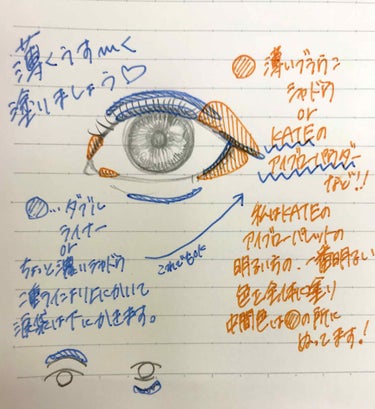 薄くうすーく
塗りましょう♡
薄いブラウン
シャドウ
or
KATEの
アイブローパウダー
など!!
…ダブル
ライナー
or
ちょっと濃いシャドウ
二重ラインより上にかいて
涙袋は下にかきます。
これでもOK
私はKATEの
アイブローパレットの
明るい方の、一番明るい
色を全体に塗り
中間色は の所に
ぬってます!